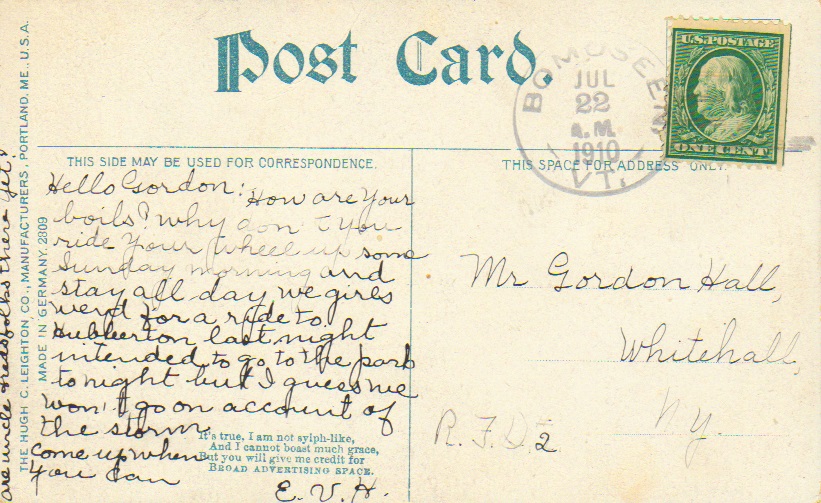 Post Card.
BOMOSEEN
JUL
22
A.M.
1910
VT.
U.S. POSTAGE
ONE CENT
THIS SIDE MAY BE USED FOR CORRESPONDENCE.
THIS SPACE FOR ADDRESS ONLY.
Hello Gordon: How are your
boils? why don't you
ride your wheel up some
Sunday morning and
stay all day we girls
went for a ride to
Hubberton last night
intended to go to the park
tonight but I guess we
won't go on account of
the storm
come up when
you can
E. V. H.
are uncle Neds folks there yet?
It's true, I am not sylph-like,
And I cannot boast much grace,
But you will give me credit for
BROAD ADVERTISING SPACE.
Mr Gordon Hall,
Whitehall,
Ny.
R. F. D. 2
THE HUGH C. LEIGHTON CO., MANUFACTURERS, PORTLAND, ME., U.S.A.
MADE IN GERMANY. 2809